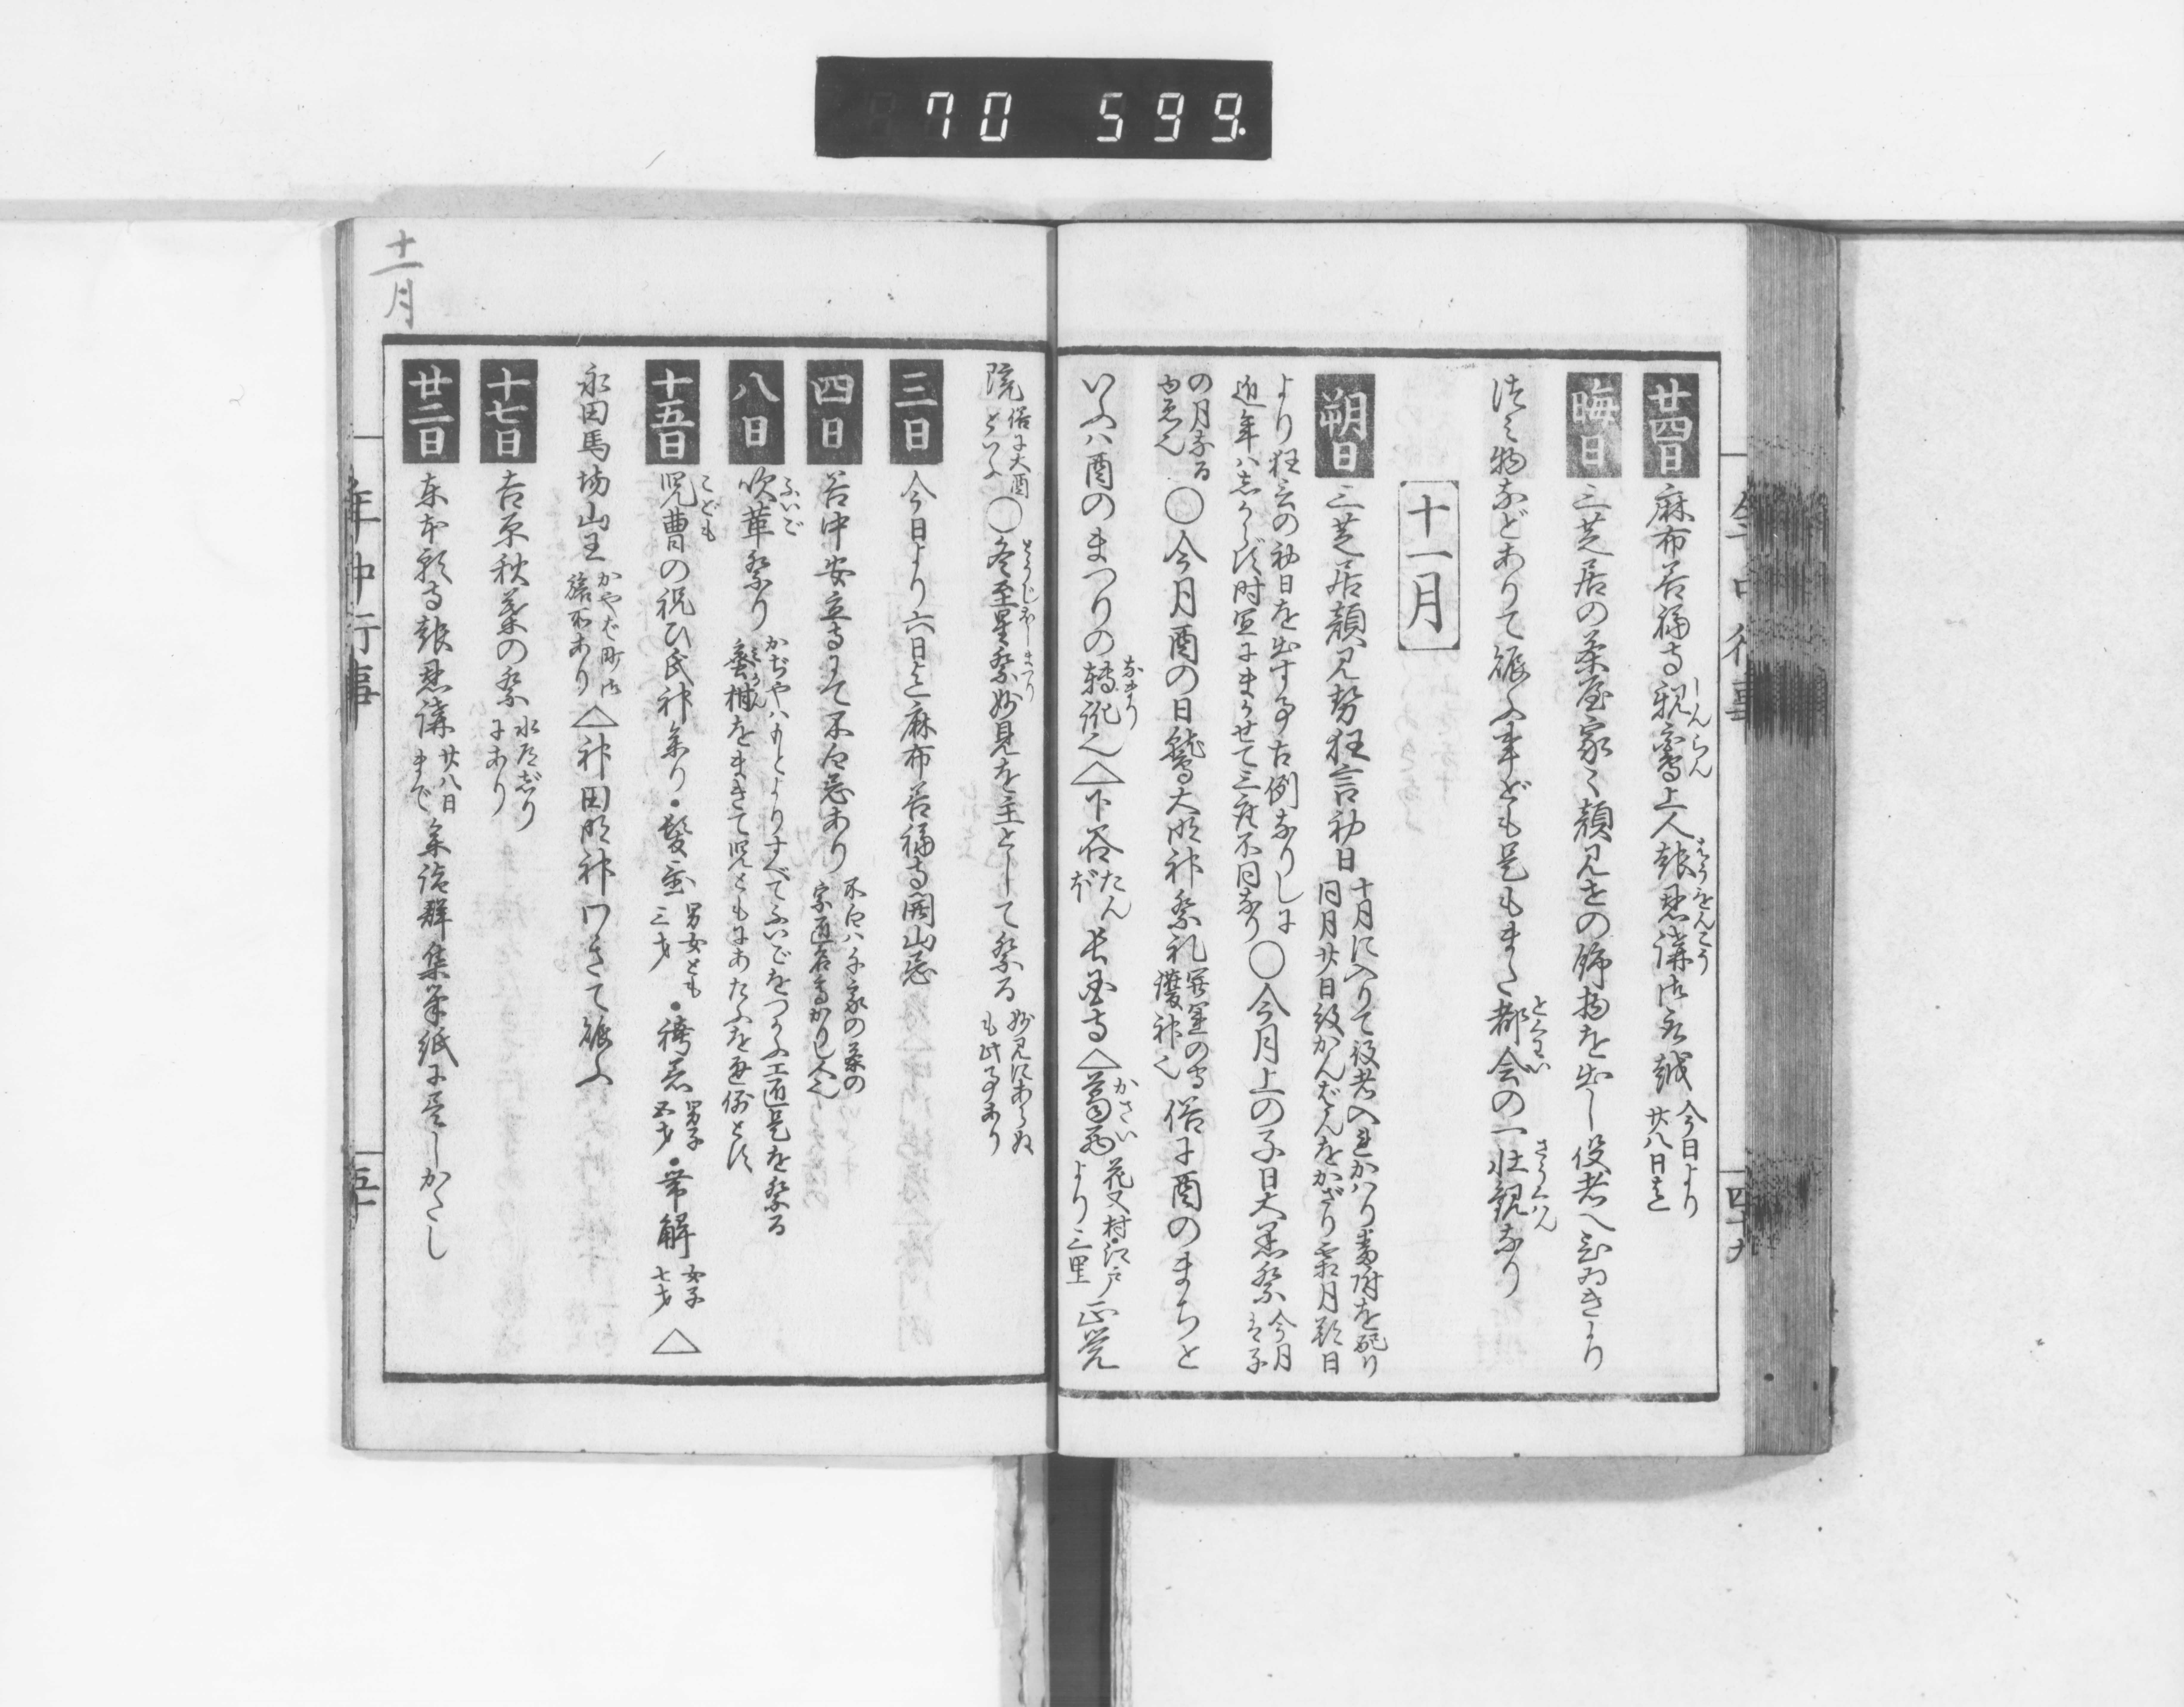 70 599.
廿四日 麻布善福寺親鸞上人報恩講法会 今日より廿八日迄
晦日 三芝居の茶屋家々顔見せの飾物を出し役者へひゐきより
積物などありて賑ふ事ども是もまた都会の一壮観なり
十一月
朔日 三芝居顔見勢狂言初日 十月に入りて役者入れかはり番附を配り
同月廿日紋かんばんをかざり霜月朔日
より狂言の初日を出す事古例なりしに
近年ハしからず時宜にまかせて三座不同なり 〇今月上の子日大黒祭 今月ハ子
の月なるゆゑ也 〇今月酉の日鷲大明神祭礼 開運の守護神也 俗に酉のまちと
いふハ酉のまつりの転訛也 △下谷たんぼ 長国寺 △葛西 花又村江戸より三里 正覚
院 俗に大酉といふ 〇冬至星祭妙見を主として祭る 妙見にあらぬも此事あり
三日 今日より六日迄麻布善福寺開山忌
四日 谷中安立寺にて不白忌あり 不白ハ千家の茶の宗匠名高かりし人也
八日 吹革祭り かぢやハもとよりすべてふいごをつかふ工匠是を祭る
蜜柑をまきて児どもにあたふを通例とす
十五日 児曹の祝ひ氏神参り・髪置 男女とも三才 ・袴着 男子五才 ・帯解 女子七才 △
永田馬場山王 かやば町御旅所あり △神田明神わきて賑ふ
十七日 吉原秋葉の祭 水道じりにあり
廿二日 東本願寺報恩講 廿八日まで 参詣群集筆紙に尽しがたし
年中行事
四十九
年中行事
五十
十一月